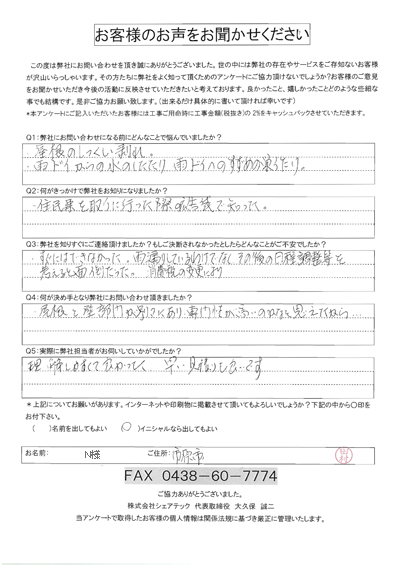 お客様のお声をお聞かせください
この度は弊社にお問い合わせを頂き誠にありがとうございました。世の中には弊社の存在やサービスをご存知ないお客様
が沢山いらっしゃいます。その方たちに弊社をよく知って頂くためのアンケートにご協力頂けないでしょうか？お客様のご意見
をお聞かせいただき今後の活動に反映させていただきたいと考えております。良かったこと、嬉しかったことどのような些細な
事でも結構です。是非ご協力お願い致します。（出来るだけ具体的に書いて頂ければ幸いです）
*本アンケートにご記入いただいたお客様には工事ご用命時に工事金額（税抜き）の 2%をキャッシュバックさせていただきます。
Q1：弊社にお問い合わせになる前にどんなことで悩んでいましたか？
・屋根のしっくい剥れ。
・雨ドイからの水のしたたり 雨ドイへのすずめの巣
Q2：何がきっかけで弊社をお知りになりましたか？
・住民票を取りに行った際 広告等で知った。
Q3：弊社を知りすぐにご連絡頂けましたか？もしご決断されなかったとしたらどんなことがご不安でしたか？
・すぐにはできなかった。雨漏りしているわけでなく その後の日程調整等を
考えると面倒だった。 消費税の変更により
Q4：何が決め手となり弊社にお問い合わせ頂きましたか？
・屋根と 部門が別々にあり 専門性が高いのかなと思えたから…
Q5：実際に弊社担当者がお伺いしていかがでしたか？
理解しやすくて良かったし 早い見積りも良いです
* 上記についてお願いがあります。インターネットや印刷物に掲載させて頂いてもよろしいでしょうか？下記の中から〇印を
お付下さい。
（　　）名前を出してもよい　（〇）イニシャルなら出してもよい
お名前： N様 ご住所： 市原市
FAX 0438-60-7774
ご協力ありがとうございました。
株式会社シェアテック 代表取締役 大久保 誠二
当アンケートで取得したお客様の個人情報は関係法規に基づき厳正に管理いたします。